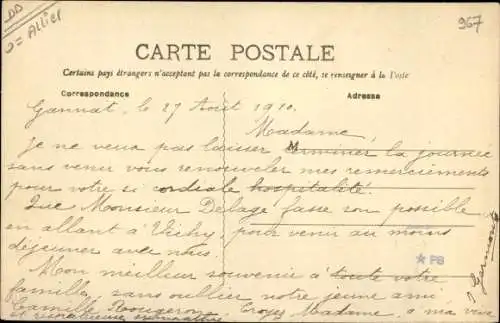 DD
D = Allier
967
CARTE POSTALE
Certains pays étrangers n'acceptant pas la correspondance de ce côté, se renseigner à la Poste
Correspondance
Adresse
Gannat, le 27 Août 1910.
Madame,
M
Je ne veux pas laisser terminer la journée
sans venir vous renouveler mes remerciements
pour votre si cordiale hospitalité.
Que Monsieur Delage fasse son possible
en allant à Vichy pour venir au moins
déjeuner avec nous.
PB
Mon meilleur souvenir à toute votre
famille, sans oublier notre jeune ami
Camille Rougeron. Croyez Madame, à ma vive
et respectueuse